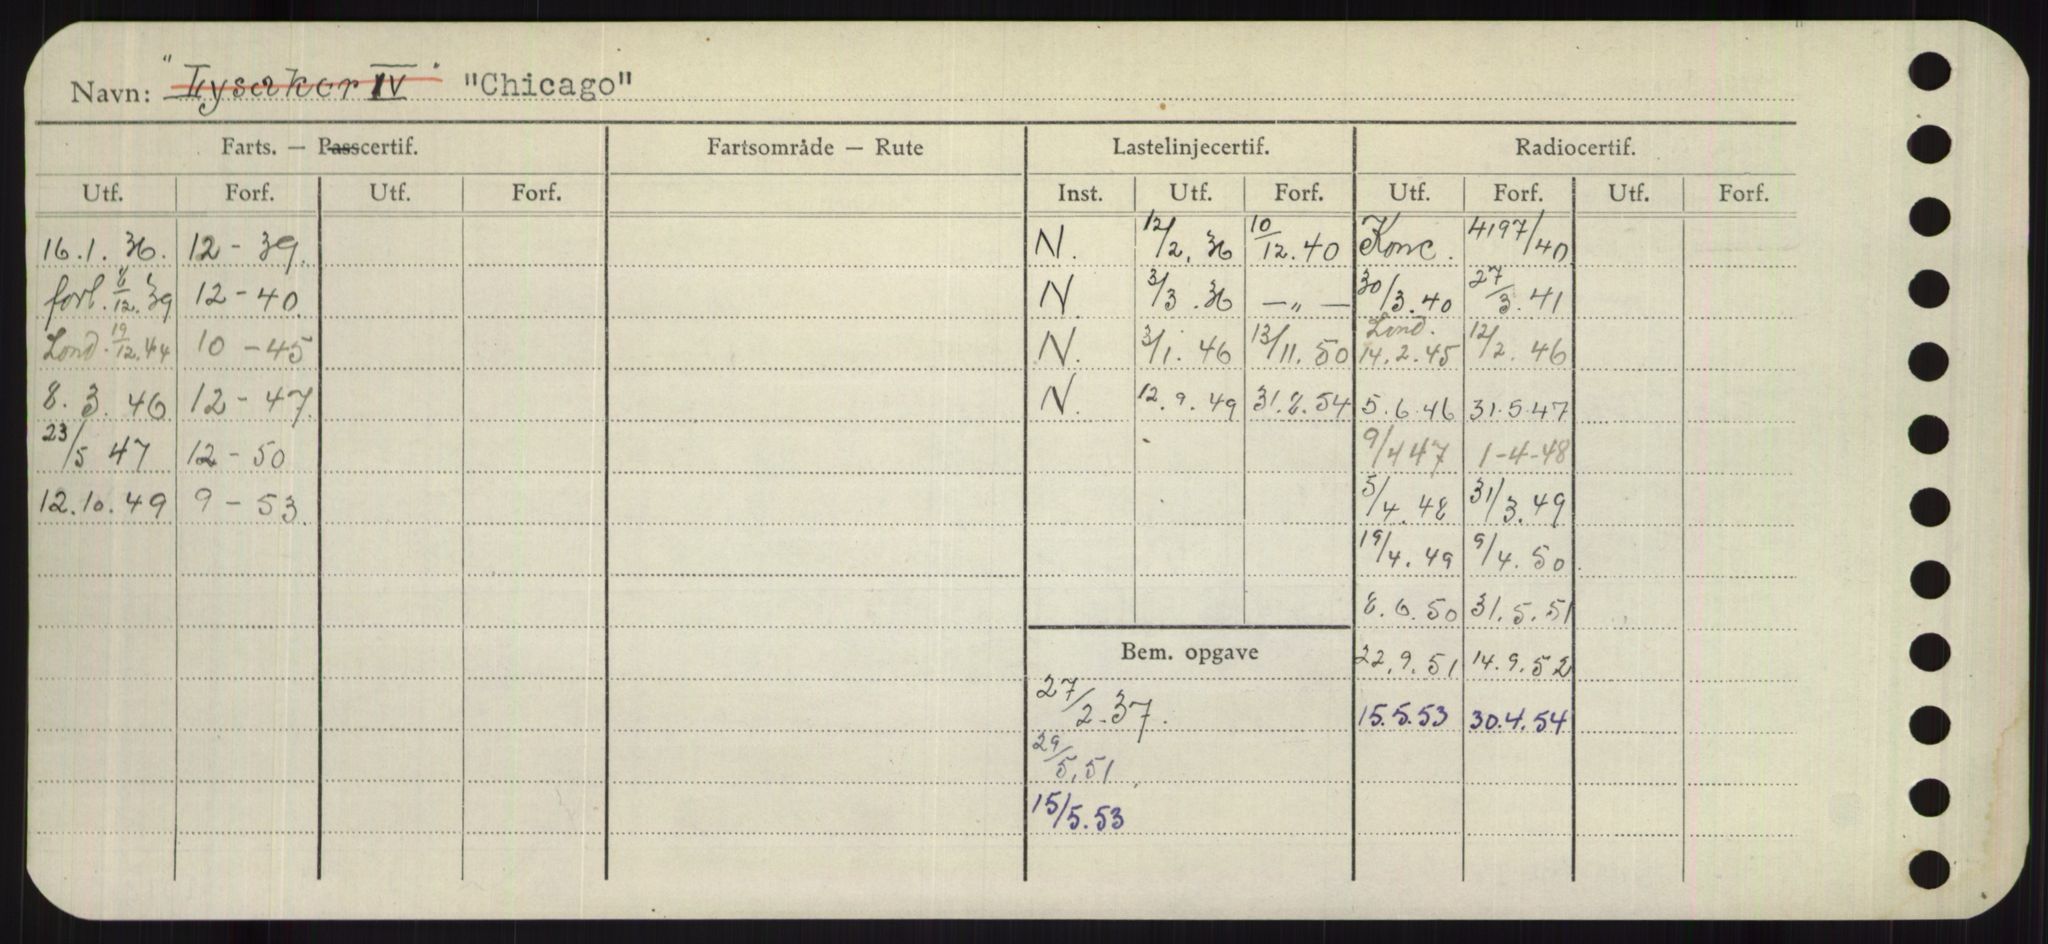 Navn: "Lysaker IV" "Chicago"
Farts. — Passcertif. Fartsområde — Rute Lastelinjecertif. Radiocertif.
Utf. Forf. Utf. Forf. Inst. Utf. Forf. Utf. Forf. Utf. Forf.
16.1.36. 12-39. N. 12/2.36 10/12.40 Konc. 4197/40
forl. 8/12.39 12-40. N. 3/3.36 —„— 30/3.40 27/3.41
Lond. 19/12.44 10-45 N. 3/1.46 13/11.50 Lond. 14.2.45 12/2.46
8.3.46. 12-47. N. 12.9.49 31.8.54 5.6.46 31.5.47
23/5 47 12-50 9/4 47 1-4-48
12.10.49 9-53. 5/4.48 31/3.49
19/4.49 9/4.50
8.6.50 31.5.51
Bem. opgave 22.9.51 14.9.52
27/2.37. 15.5.53 30.4.54
29/5.51
15/5.53